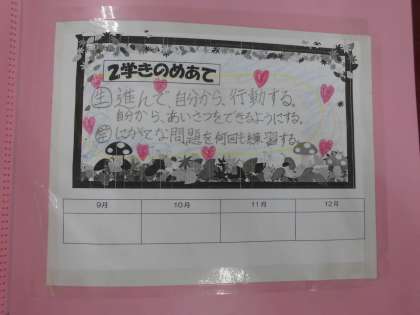 2学きのめあて
生 進んで、自分から、行動する。
自分から、あいさつをできるようにする。
にがてな問題を何回も練習する。
9月 10月 11月 12月